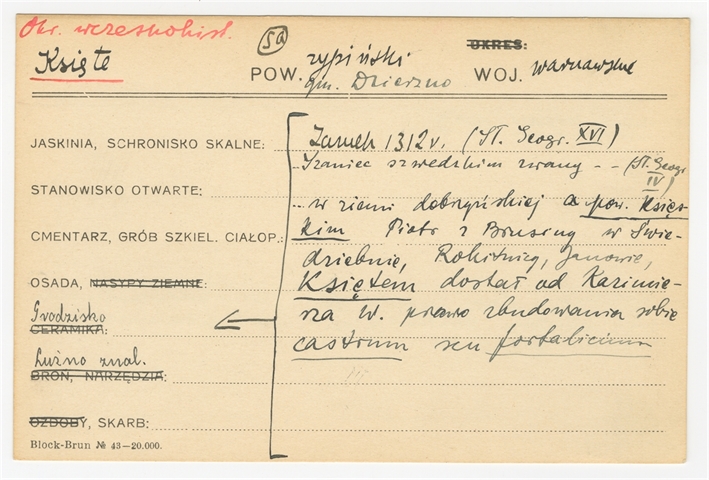 Okr. wczesnohist.
5a
Księte
POW. rypiński
gm. Dzierzno
OKRES:
WOJ. warszawskie
JASKINIA, SCHRONISKO SKALNE:
Zamek 1312 r. (Sł. Geogr. XVI)
.. Szaniec szwedzkim zwany - - (Sł. Geogr. IV)
STANOWISKO OTWARTE:
.. w ziemi dobrzyńskiej a pow. Księs-
CMENTARZ, GRÓB SZKIEL. CIAŁOP.:
kim Piotr z Brusing w Świe-
dziebnie, Rokitnicy, Janowie,
OSADA, NASYPY ZIEMNE:
Księtem dostał od Kazimie-
Grodzisko
CERAMIKA:
rza W. prawo zbudowania sobie
castrum seu fortalicium
Luźno znal.
BROŃ, NARZĘDZIA:
OZDOBY, SKARB:
Block-Brun № 43—20.000.